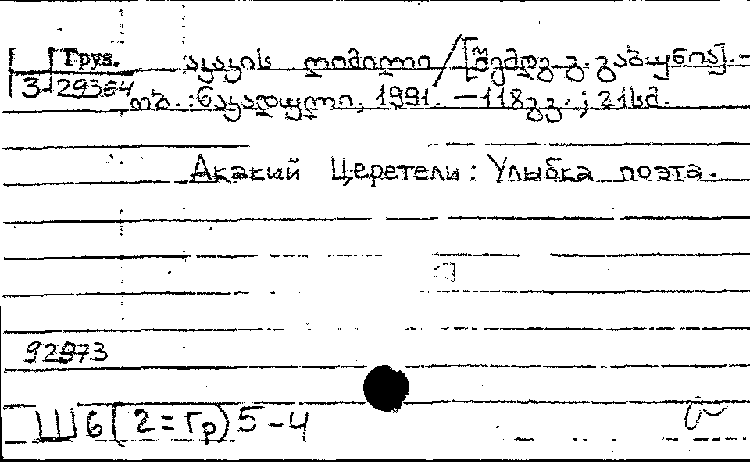 Груз.
აკაკის ღიმილი / [შემდგ. გ. გაბუნია]. -
3-29364
თბ. : ნაკადული, 1991. - 118 გვ. ; 21 სმ.
Акакий Церетели: Улыбка поэта.
92973
Ш6(2=Гр)5-4